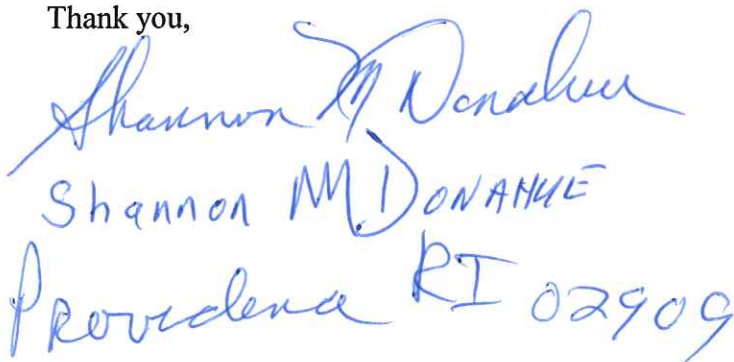 Thank you,
Shannon M Donahue
Shannon M. DONAHUE
Providence RI 02909